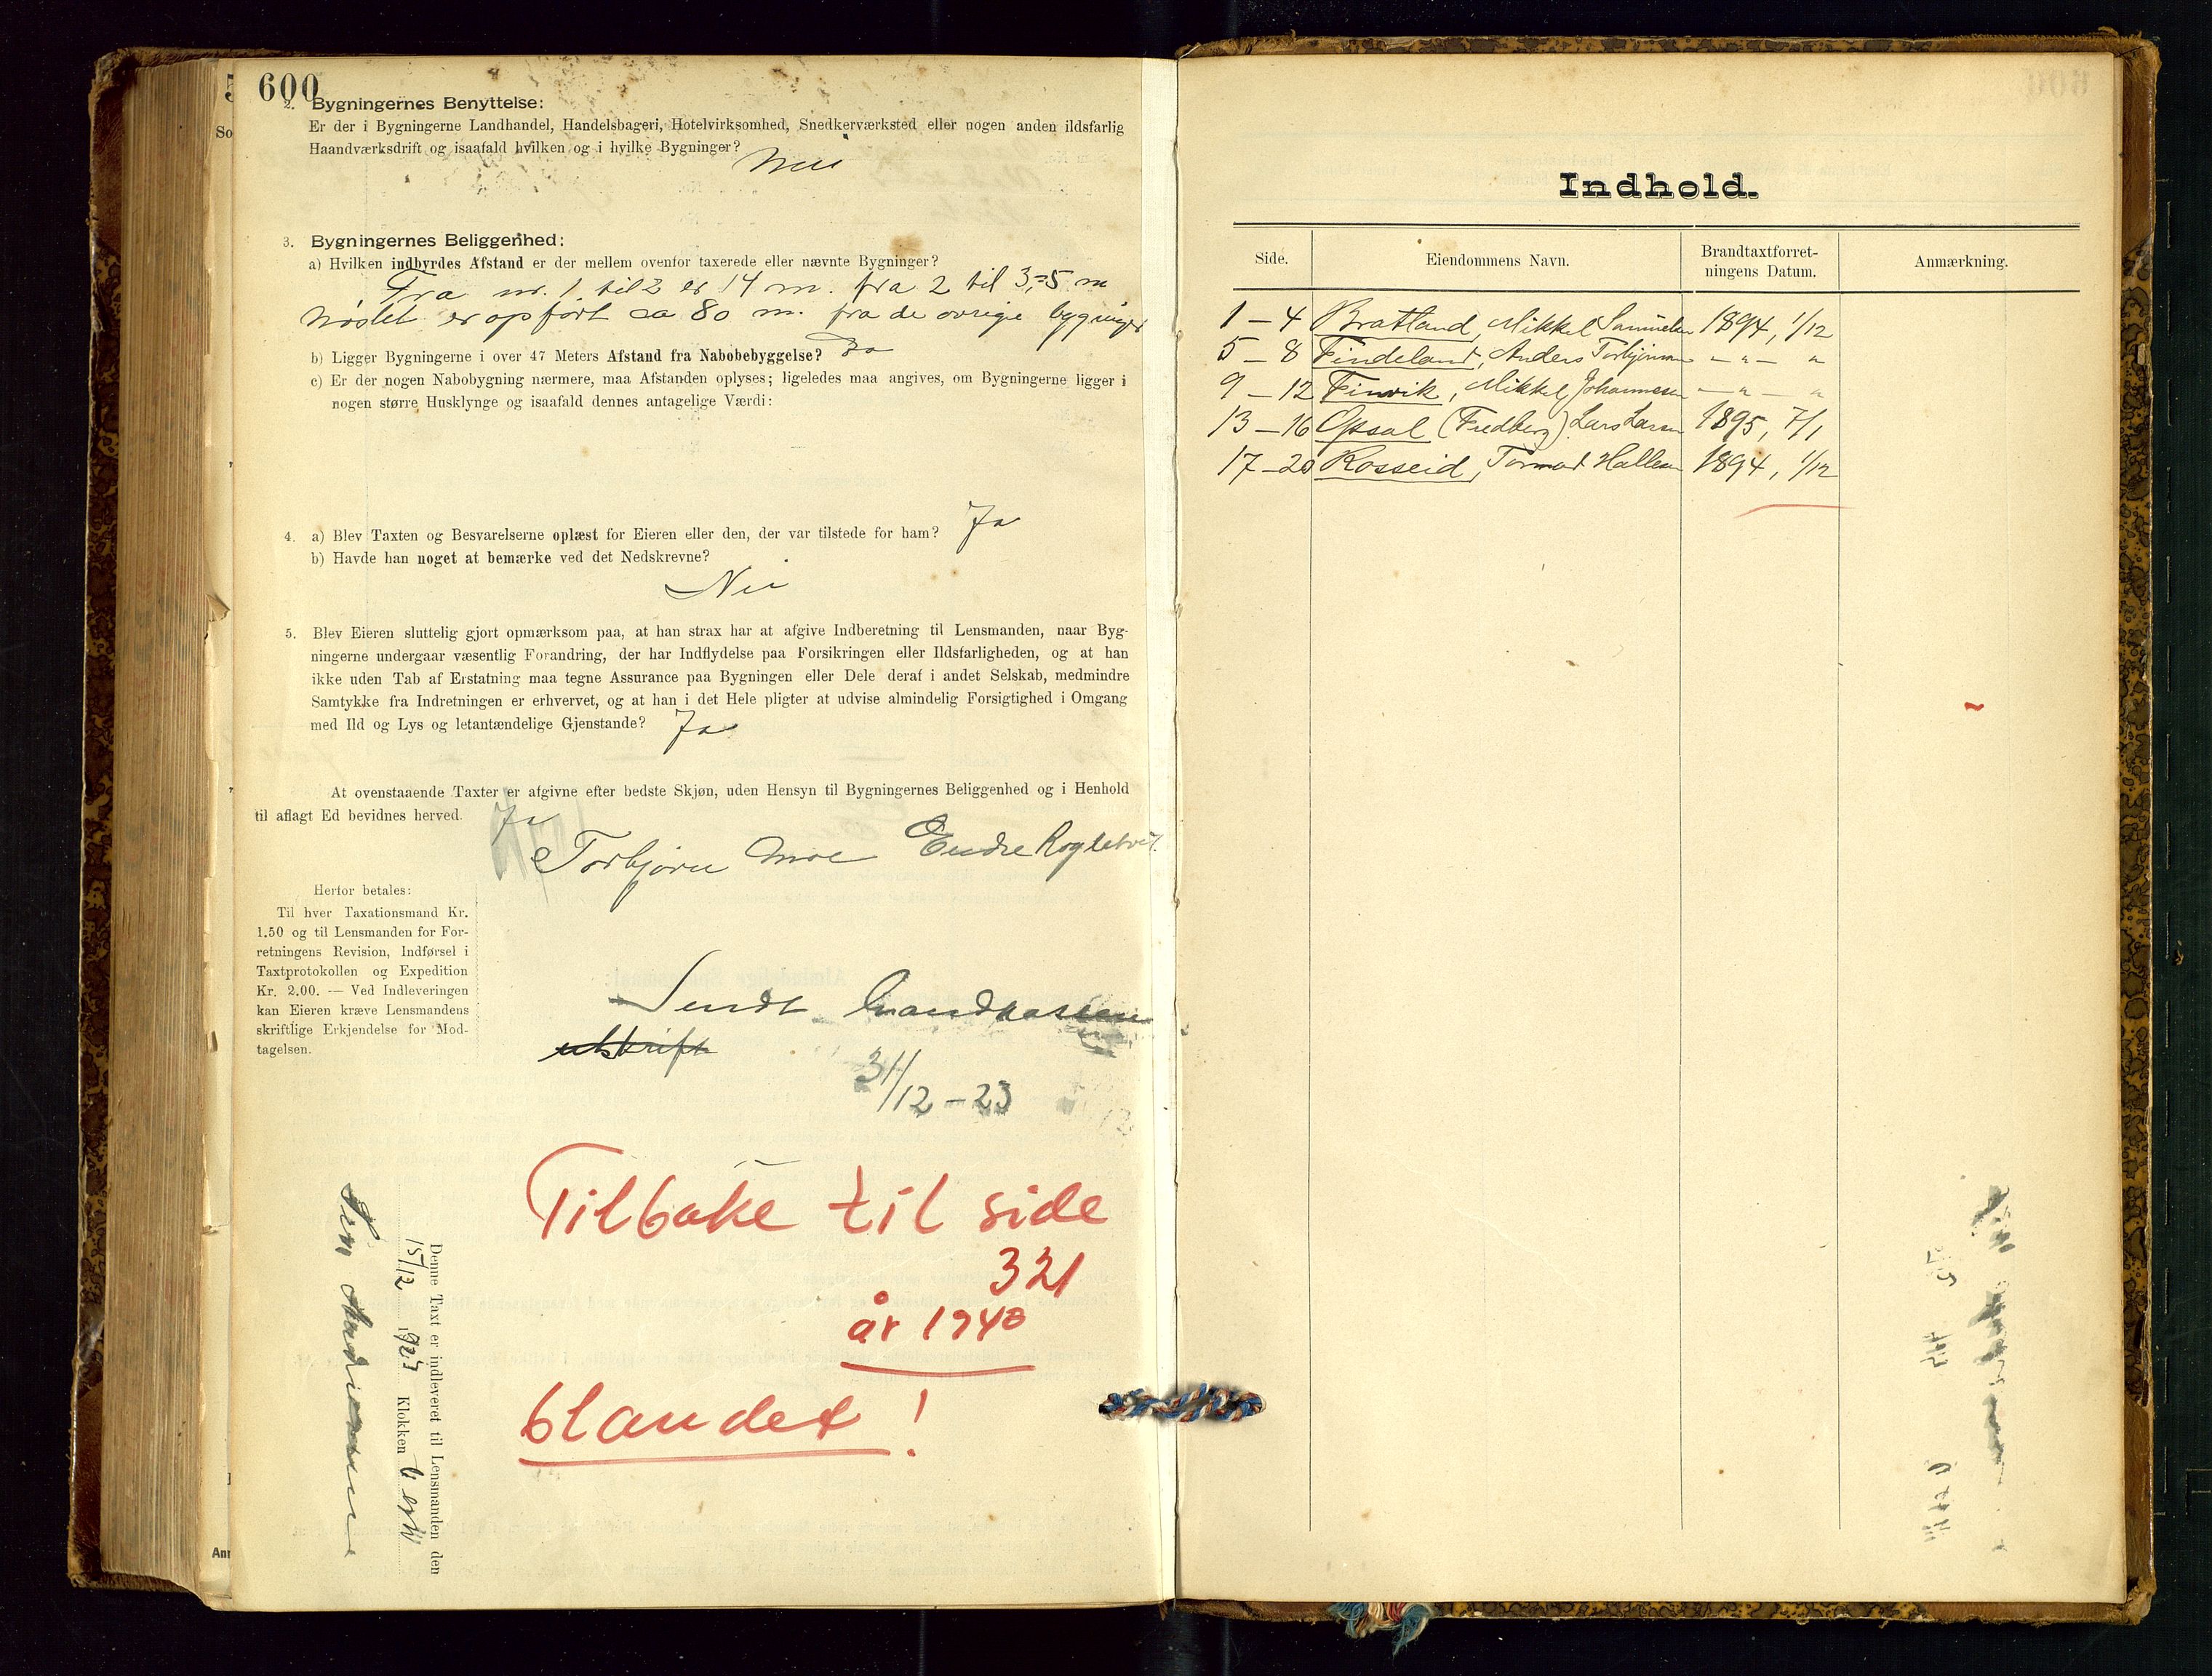 600
2. Bygningernes Benyttelse:
Er der i Bygningerne Landhandel, Handelsbageri, Hotelvirksomhed, Snedkerværksted eller nogen anden ildsfarlig
Haandværksdrift og isaafald hvilken og i hvilke Bygninger? Nei
3. Bygningernes Beliggenhed:
a) Hvilken indbyrdes Afstand er der mellem ovenfor taxerede eller nævnte Bygninger?
Fra nr. 1 til 2 er 14 m. fra 2 til 3, 5 m
Nøstet er opført ca 80 m. fra de øvrige bygninger
b) Ligger Bygningerne i over 47 Meters Afstand fra Nabobebyggelse? Ja
c) Er der nogen Nabobygning nærmere, maa Afstanden oplyses; ligeledes maa angives, om Bygningerne ligger i
nogen større Husklynge og isaafald dennes antagelige Værdi:
4. a) Blev Taxten og Besvarelserne oplæst for Eieren eller den, der var tilstede for ham? Ja
b) Havde han noget at bemærke ved det Nedskrevne?
Nei
5. Blev Eieren sluttelig gjort opmærksom paa, at han strax har at afgive Indberetning til Lensmanden, naar Byg-
ningerne undergaar væsentlig Forandring, der har Indflydelse paa Forsikringen eller Ildsfarligheden, og at han
ikke uden Tab af Erstatning maa tegne Assurance paa Bygningen eller Dele deraf i andet Selskab, medmindre
Samtykke fra Indretningen er erhvervet, og at han i det Hele pligter at udvise almindelig Forsigtighed i Omgang
med Ild og Lys og letantændelige Gjenstande? Ja
At ovenstaaende Taxter er afgivne efter bedste Skjøn, uden Hensyn til Bygningernes Beliggenhed og i Henhold
til aflagt Ed bevidnes herved. Ja
Torbjørn Moe Endre
Herfor betales:
Til hver Taxationsmand Kr.
1.50 og til Lensmanden for For-
retningens Revision, Indførsel i
Taxtprotokollen og Expedition
Kr. 2.00. — Ved Indleveringen
kan Eieren kræve Lensmandens
skriftlige Erkjendelse for Mod-
tagelsen.
Sendt Brandkassen
utskrift
31/12 - 23
Tilbake til side
321
år 1940
blandet!
Denne Taxt er indleveret til Lensmanden den
15/12 1923 Klokken 6 eM
Indhold.
Side. Eiendommens Navn. Brandtaxtforret-
ningens Datum. Anmærkning.
1 - 4 Bratland, Mikkel Samuelsen 1894, 1/12
5 - 8 Findeland, Anders Torbjørnsen - " - "
9 - 12 Finvik, Mikkel Johannesen - " - "
13 - 16 Opsal (Fredberg) Lars Larsen 1895, 7/1
17 - 20 Rosseid, Tormod Hallesen 1894, 1/12